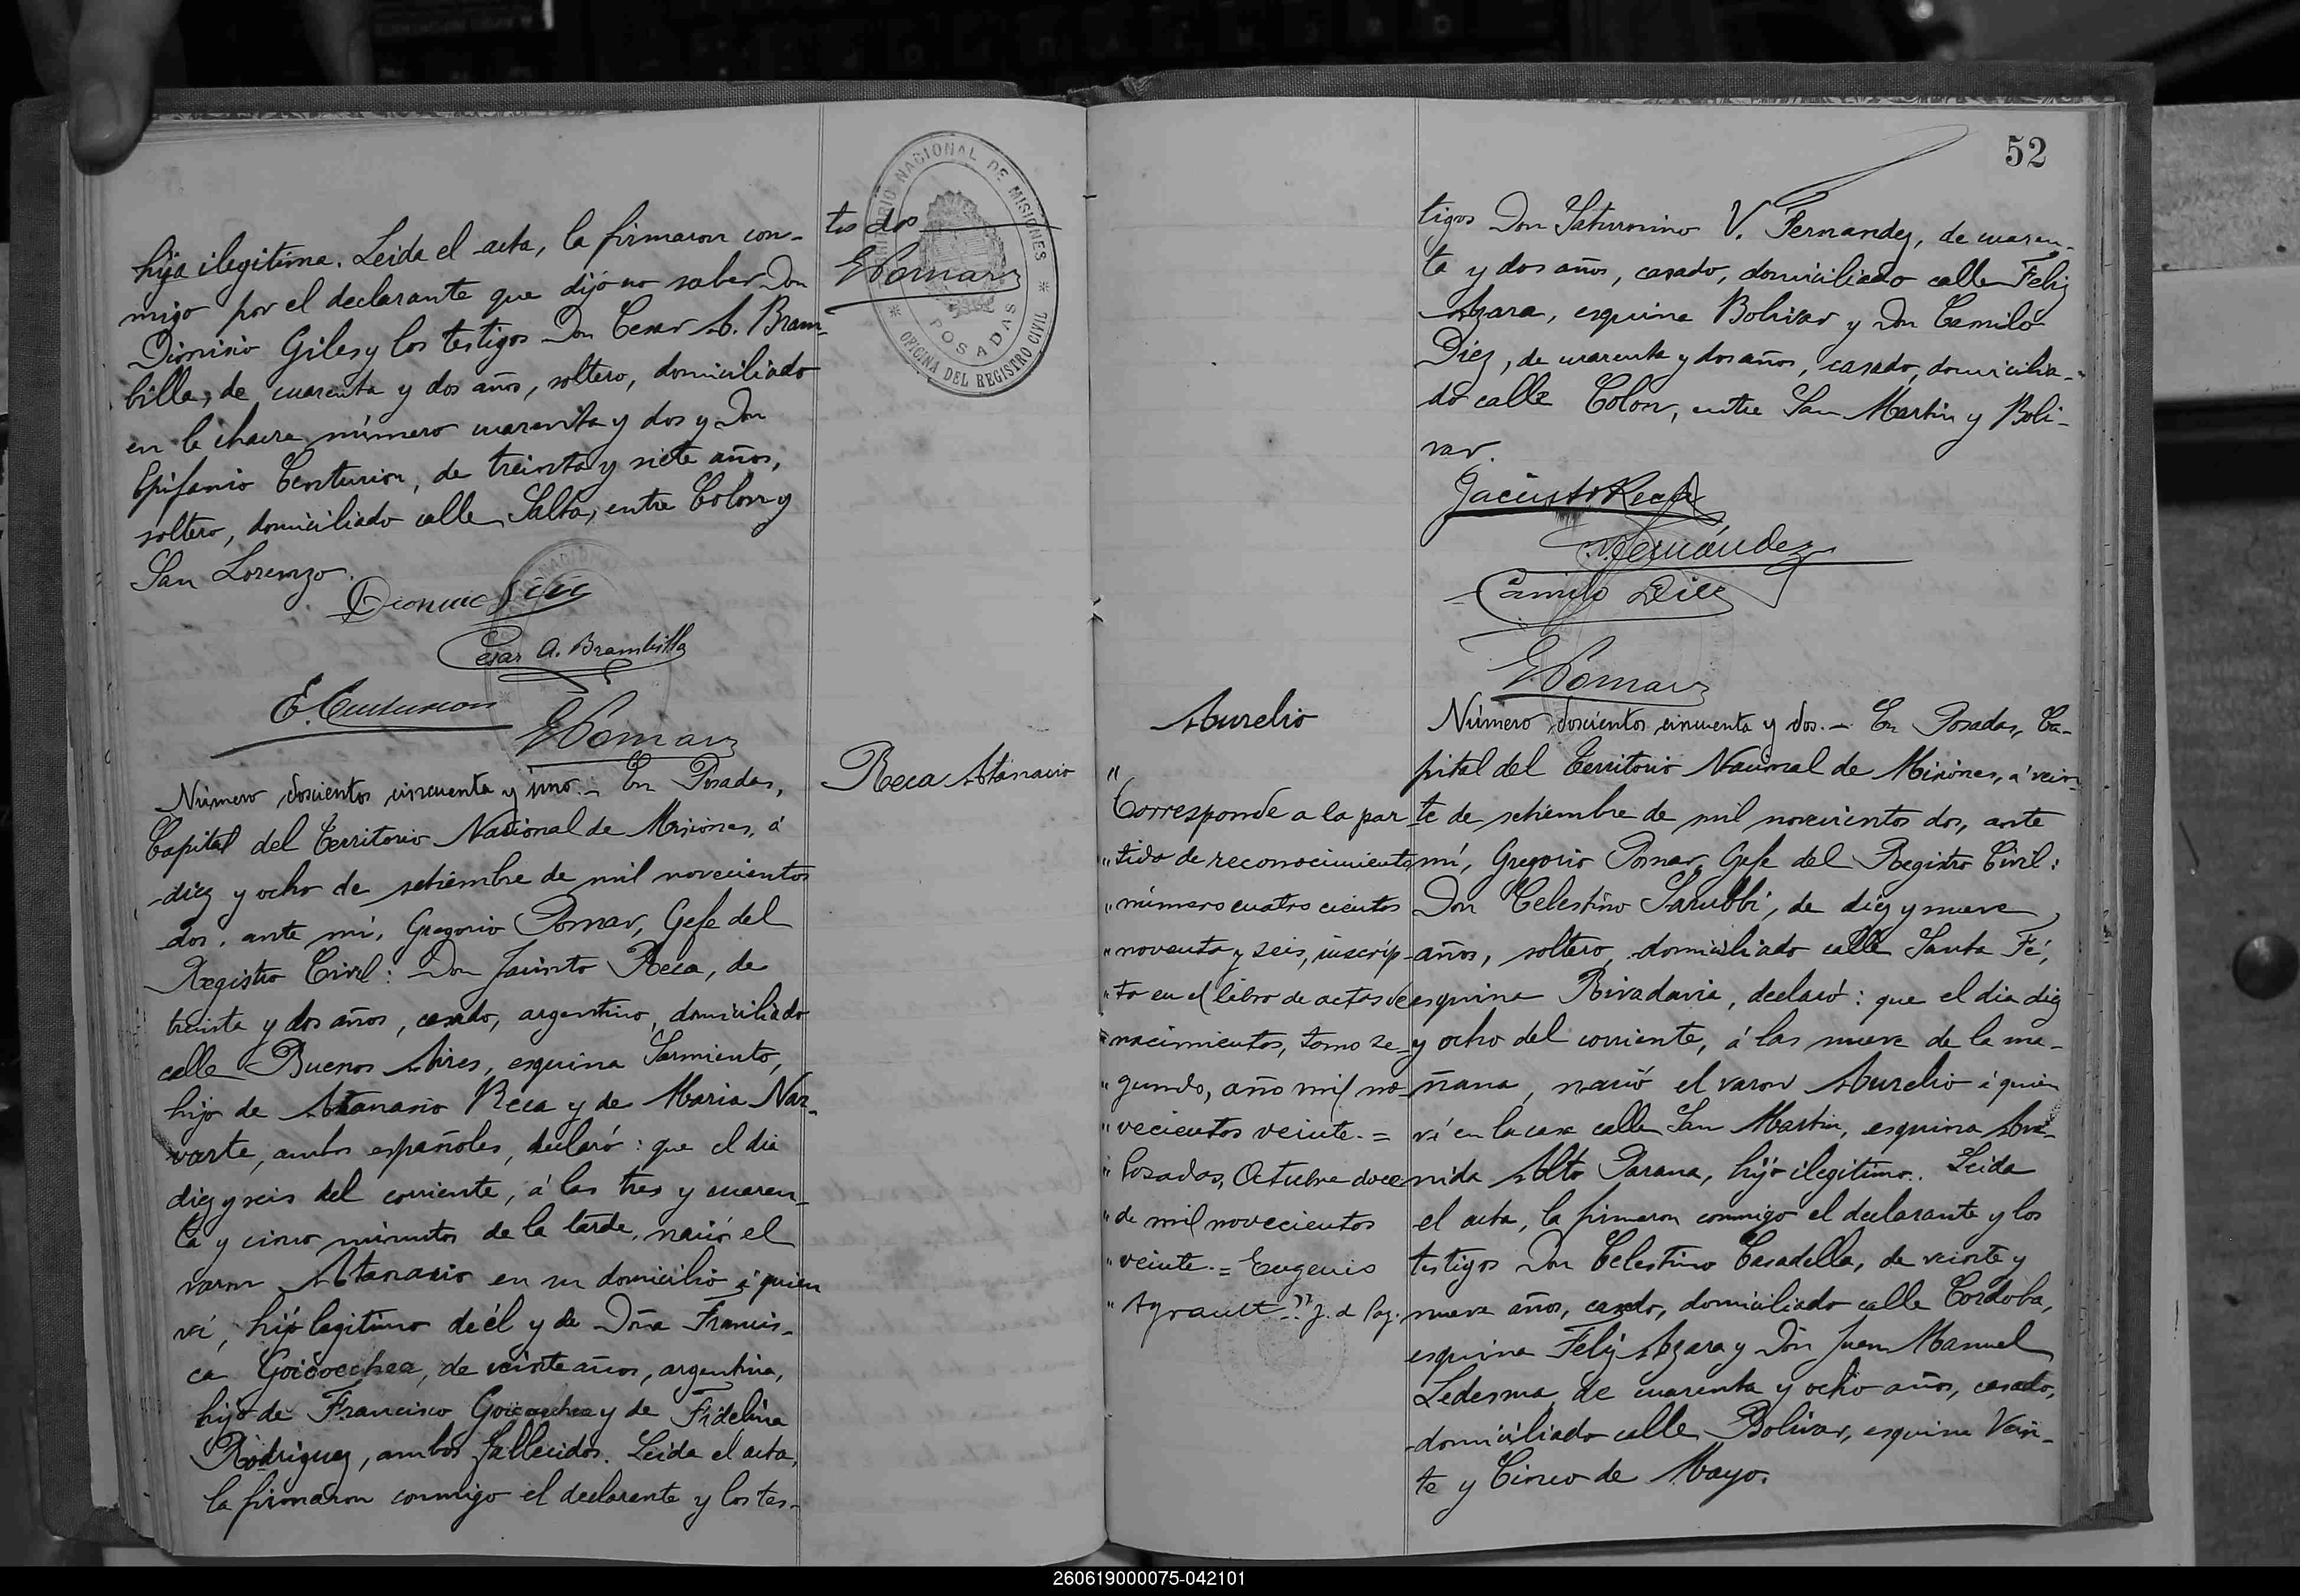 hija ilegitima. Leida el acta, la firmaron con-
migo por el declarante que dijo no saber Don
Dionisio Giles y los testigos Don Cesar A. Bram-
billa, de cuarenta y dos años, soltero, domiciliado
en la chacra número cuarenta y dos y Don
Epifanio Centurion, de treinta y siete años,
soltero, domiciliado calle Salta, entre Colon y
San Lorenzo.
Cesar A. Brambilla
E. Centurion
GPomar
Número doscientos cincuenta y uno.- En Posadas,
Capital del Territorio Nacional de Misiones, á
diez y ocho de setiembre de mil novecientos
dos, ante mí, Gregorio Pomar, Gefe del
Registro Civil: Don Jacinto Reca, de
treinta y dos años, casado, argentino, domiciliado
calle Buenos Aires, esquina Sarmiento,
hijo de Atanasio Reca y de Maria Nar-
varte, ambos españoles, declaró: que el dia
diez y seis del corriente, á las tres y cuaren-
ta y cinco minutos de la tarde, nació el
varon Atanasio en su domicilio á quien
ví, hijo legitimo de él y de Doña Francis-
ca Goicoechea, de veinte años, argentina,
hija de Francisco Goicoechea y de Fidelina
Rodriguez, ambos fallecidos. Leida el acta,
la firmaron conmigo el declarante y los tes-
tos dos
GPomar
TERRITORIO NACIONAL DE MISIONES
POSADAS
OFICINA DEL REGISTRO CIVIL
Reca Atanasio
52
tigos Don Saturnino V. Fernandez, de cuaren-
ta y dos años, casado, domiciliado calle Feliz
Azara, esquina Bolivar y Don Camilo
Diez, de cuarenta y dos años, casado, domicilia-
do calle Colon, entre San Martin y Boli-
var.
Jacinto Reca
Fernández
Camilo Diez
GPomar
Aurelio
"
Corresponde a la par
" tida de reconocimiento
" número cuatrocientos
" noventa y seis, inscrip-
" ta en el libro de actas de
" nacimientos, tomo se-
" gundo, año mil no-
" vecientos veinte.=
" Posadas, Octubre doce
" de mil novecientos
" veinte.= Eugenio
" Ayrault=" J. de Paz.
Número doscientos cincuenta y dos.- En Posadas, Ca-
pital del Territorio Nacional de Misiones, á vein-
te de setiembre de mil novecientos dos, ante
mí, Gregorio Pomar, Gefe del Registro Civil:
Don Celestino Sarubbi, de diez y nueve
años, soltero, domiciliado calle Santa Fé,
esquina Rivadavia, declaró: que el dia diez
y ocho del corriente, á las nueve de la ma-
ñana, nació el varon Aurelio á quien
ví en la casa calle San Martin, esquina Ave-
nida Alto Parana, hijo ilegitimo. Leida
el acta, la firmaron conmigo el declarante y los
testigos Don Celestino Casadella, de veinte y
nueve años, casado, domiciliado calle Cordoba,
esquina Feliz Azara y Don Juan Manuel
Ledesma, de cuarenta y ocho años, casado,
domiciliado calle Bolivar, esquina Vein-
te y Cinco de Mayo.
260619000075-042101